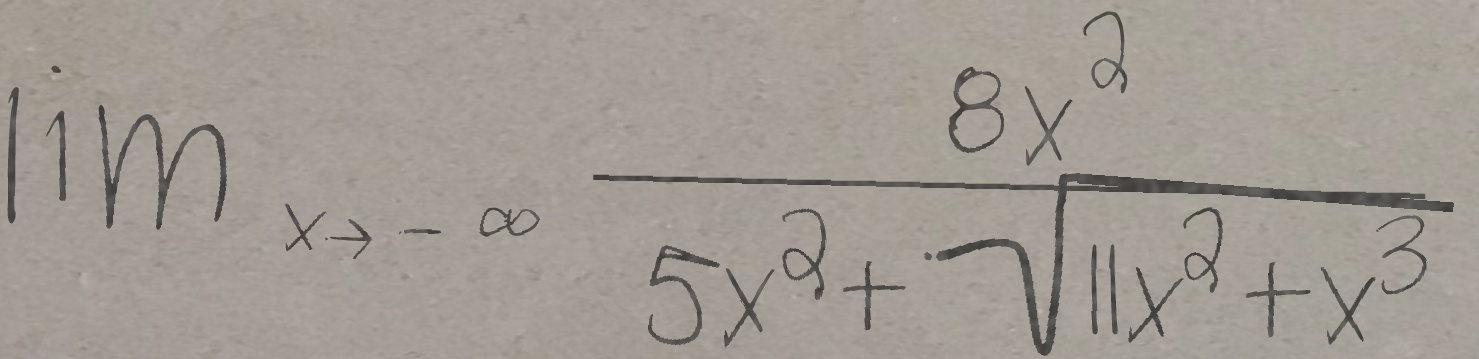 lim x→-∞ 8x² / (5x² + √(11x² + x³))